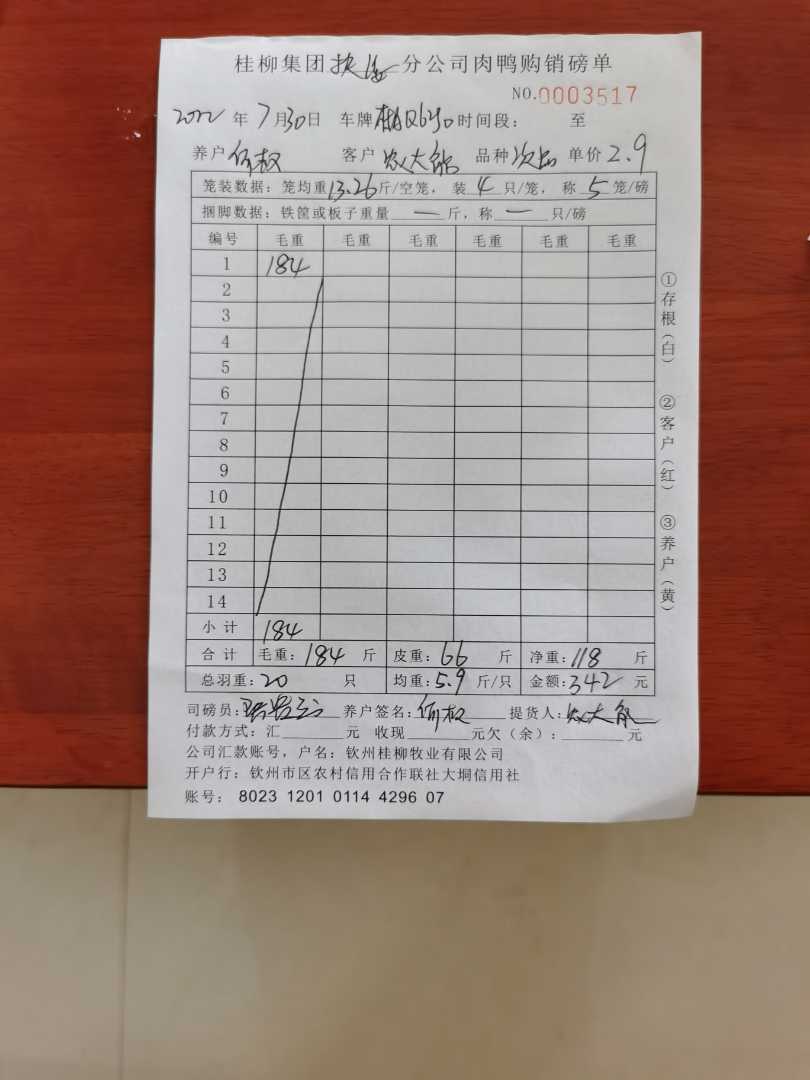 桂柳集团 分公司肉鸭购销磅单
NO.0003517
2022年7月30日 车牌 时间段： 至
养户 客户 农大 品种次品 单价2.9
笼装数据：笼均重13.26斤/空笼，装4只/笼，称5笼/磅
捆脚数据：铁筐或板子重量一斤，称一只/磅
编号 毛重 毛重 毛重 毛重 毛重 毛重
1 184
2
3
4
5
6
7
8
9
10
11
12
13
14
小计 184
合计 毛重：184斤 皮重：66斤 净重：118斤
总羽重：20只 均重：5.9斤/只 金额：342元
司磅员： 养户签名： 提货人：农大
付款方式：汇____元 收现____元欠（余）：____元
公司汇款账号，户名：钦州桂柳牧业有限公司
开户行：钦州市区农村信用合作联社大垌信用社
账号：8023 1201 0114 4296 07
①存根（白）
②客户（红）
③养户（黄）